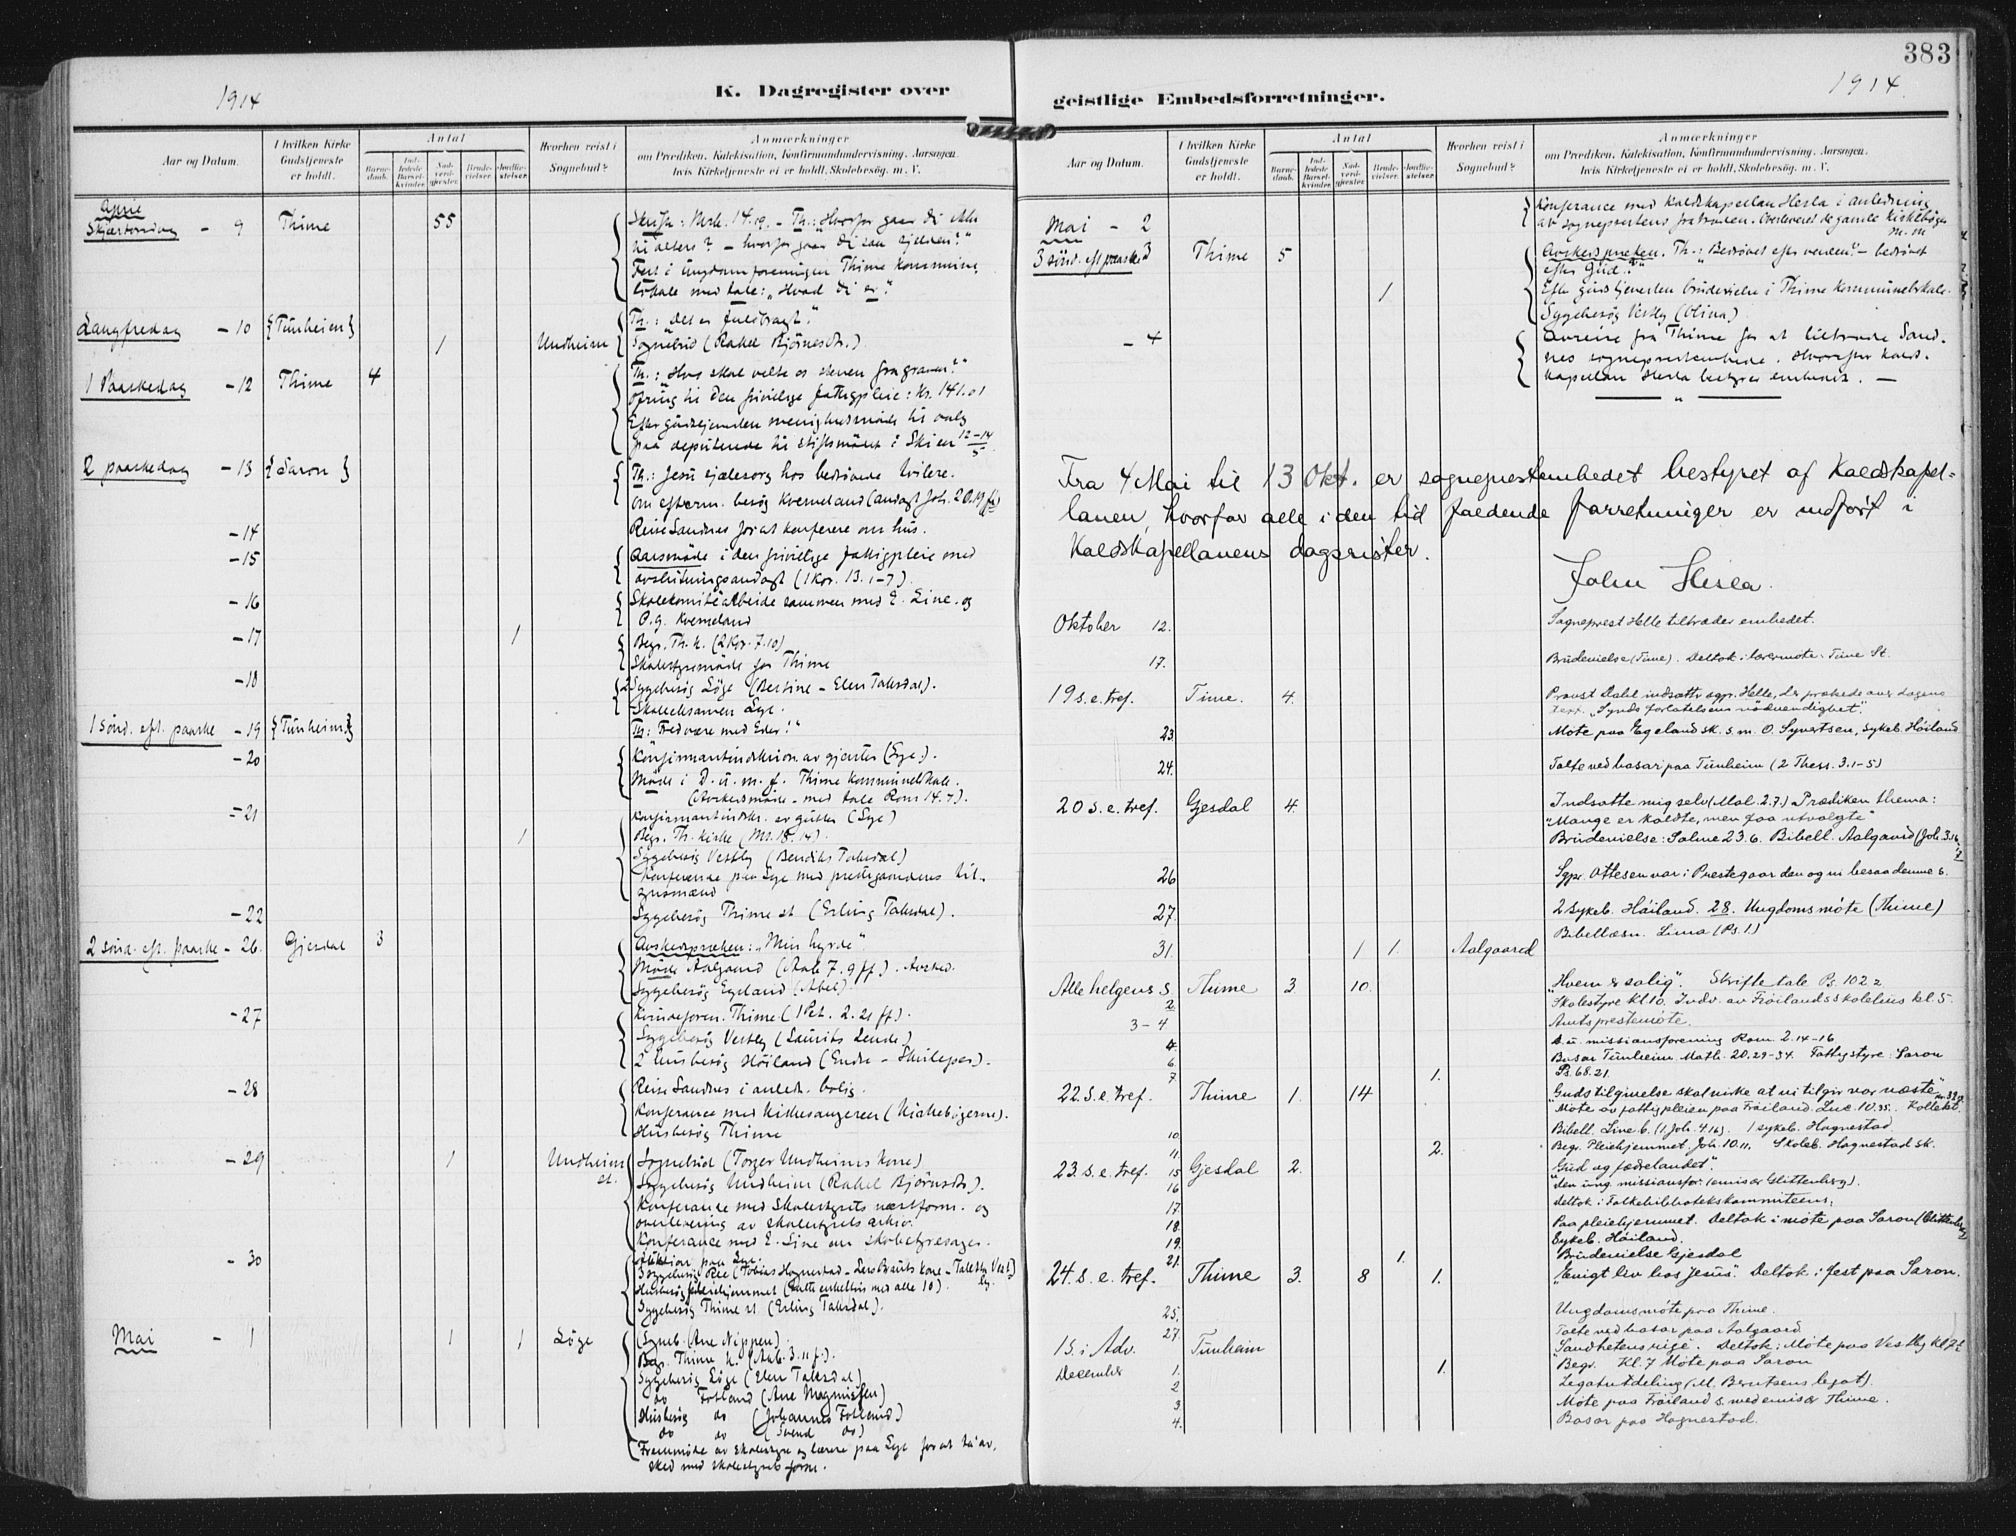 383
1914
K. Dagregister over
geistlige Embedsforretninger.
1914.
Aar og Datum.
I hvilken Kirke Gudstjeneste er holdt.
Antal
Barnedaab.
Indledede Barselkvinder.
Nadverdgjester.
Brudevielser.
Jordfæstelser.
Hvorhen reist i Sognebud?
Anmærkninger
om Prædiken, Katekisation, Konfirmandundervisning, Aarsagen,
hvis Kirketjeneste ei er holdt, Skolebesøg, m. V.
April
Skjærtorsdag - 9 Thime 55 Skrift: Mrk. 14.19. - Th.: Hvorfor gaar di ikke
til alters? - hvorfor gaar di saa sjelden?"
Fest i Ungdomsforeningen Thime kommunes
lokale med tale: "Hvad di er."
Langfredag - 10 {Tunheim} Th.: Det er fuldbragt."
1 Undheim Sognebud (Rakel Björnsdtr.)
1 Paaskedag - 12 Thime 4 Th.: Hvo skal velte os stenen fra graven?"
Ofring til den frivilige fattigpleie: Kr. 141.01
Efter gudstjenesten menighedsmøde til valg
paa deputerede til stiftsmötet i Skien 12-14
2 paaskedag - 13 {Saron} Th.: Jesu sjælesorg hos bedrövede tvilere.
Om efterm. besög Kverneland (andagt Joh. 20.19 ff)
- 14 Reise Sandnes for at konferere om hus.
- 15 Aarsmöde i den frivilige fattigpleie med
avslutningsandagt (1 Kor. 13. 1-7).
- 16 Skolekomitéarbeide sammen med E. Line og
P. G. Kverneland
- 17 1 Begr. Th. k. (2 Kor. 7.10)
Skolestyremöde for Thime
- 18 2 Sygebesög Löge (Bertine - Elen Taksdal).
Skoleeksamen Lye.
1 sönd. eft. paaske - 19 {Tunheim} Th: Fred være med Eder!"
- 20 Konfirmantinstruktion av gjenter (Lye).
Möde i D. u. m. f. Thime Kommunelokale.
(Avskedsmöde - med tale Rom 14.7).
- 21 Konfirmantinstr. av gutter (Lye)
1 Begr. Th. kirke (Mt. 18.14).
Sygebesög Vestly (Bendiks Taksdal)
Konferanse paa Lye med prestegaardens til-
synsmænd
- 22 Sygebesög Thime st. (Erling Taksdal).
2 sönd. eft. paaske - 26. Gjesdal 3 Avskedspræken: "Min hyrde".
Möde Aalgaard (Aab. 7.9 ff). Avsked.
Sygebesög Egeland (Abel)
- 27 Kvindeforen. Thime (1 Pet. 2.21 ff).
Sygebesög Vestly (Laurits Lende)
2 Husbesög Höiland (Endre - Skulepas).
- 28 Reise Sandnes i anledn. bolig.
Konferance med kirkesangeren (Kirkebögerne).
Husbesög Thime
- 29 1 Undheim st. Sognebud (Torger Undheims kone)
Sygebesög Undheim (Rakel Björnsdtr).
Konferance med Skolestyrets næstform. og
overlevering av skolestyrets arkiv.
Konferance med E. Line om skolestyresager.
- 30 Auktion paa Lye.
Sygebesög Ree (Tobias Hognestad - Lars Brauts kone - Taksdal Vestly)
Husbesög pleiehjemmet (hilste enkeltvis med alle 10).
Sygebesög Thime st. (Erling Taksdal).
Mai - 1 1 1 Löge (Sogneb. (Ane Nippen).
Begr. Thime k. (Aab. 3.11 f.).
Sygebesög Löge (Elen Taksdal)
do Fotland (Ane Magnussen)
Husbesög do (Johannes Fotland)
do do (Svend do)
Fremmöte av skolestyre og lærere paa Lye for at ta av-
sked med skolestyrets form.
Aar og Datum.
I hvilken Kirke Gudstjeneste er holdt.
Antal
Barnedaab.
Indledede Barselkvinder.
Nadverdgjester.
Brudevielser.
Jordfæstelser.
Hvorhen reist i Sognebud?
Anmærkninger
om Prædiken, Katekisation, Konfirmandundervisning, Aarsagen,
hvis Kirketjeneste ei er holdt, Skolebesøg, m. V.
Mai - 2 Konferance med Kaldskapellan Hesla i anledning
av sogneprestens fratræden. Overleveret de gamle Kirkebøger
m.m
3 sönd. eft paaske 3 Thime 5 Avskedspreken. Th.: "Bedrövet efter verden" - bedrövet
efter Gud?"
1 Efter gudstjenesten brudevielse i Thime Kommunelokale.
Sygebesög Vestly (Olina)
- 4 Avreise fra Thime for at tiltræde Sand-
nes sogneprestembede. Hvorefter kalds-
kapellan Hesla bestyrer embedet. -
Fra 4 Mai til 13 Okt. er sogneprestembedet bestyret af Kaldskapel-
lanen, hvorfor alle i den tid faldende forretninger er indført i
Kaldskapellanens dagsrister.
John Hesla.
Oktober 12. Sogneprest Helle tiltræder embedet.
17. Brudevielse (Time). Deltok i lærermöte: Time St.
19 s. e. tref. Time. 4. Provst Dahl indsætter sgpr. Helle, der prækede over dagens
text. "Synds forlatelsens nödvendighet".
23. Möte paa Egeland sk. s. m. O. Syvertsen, sykeb. Höiland
24. Talte ved basar paa Tunheim (2 Thess. 3.1-5)
20 s. e. tref. Gjesdal 4. Indsatte mig selv (Mal. 2.7.) Prædiken thema:
"Mange er kaldte, men faa utvalgte"
Brudevielse: Salme 23.6. Bibell. Aalgaard (Joh. 3.16
26 Sgpr. Ottesen var i Prestegaarden og vi besaa denne s.
27. 2 sykeb. Höiland. 28. Ungdomsmöte (Thime)
Bibellæsn. Lima (Ps. 1)
31. 1 1. Aalgaard
Alle helgens s. Thime 3. 10. "Hvem er salig". Skriftetale Ps. 102.2
2. Skolestyre Kl 10. Indv. av Fröilands skolehus kl. 5.
3-4 Amtsprestemöte.
4. D. u. missionsforening Rom. 2.14-16
6. Basar Tunheim Math. 20.29-34. Fattigstyre: Saron
7 1. Ps. 68.21.
22. S. e. tref. Thime 1. 14 "Guds tilgivelse skal virke at vi tilgir vor næste"
Möte av fattigpleien paa Fröiland. Luc. 10.35. Kollekt.
10. Bibell. Line b. (1. Joh. 4.16). 1 sykeb. Hognestad
11. 2. Begr. Pleiehjemmet. Joh. 10.11. Skoleb. Hognestad sk.
23. s. e. tref. 15 Gjesdal 2. "Gud og fædrelandet".
16 Den ung. missionsfor. (emisær Glittenberg).
17. Deltok i Folkebibliotekskommiteens.
18. Paa pleiehjemmet. Deltok i möte paa Saron (Glittenberg)
19. Sykeb. Höiland.
21. 1. Brudevielse Gjesdal
24. s. e. tref. Thime 3. 8 1. "Evigt liv hos Jesus". Deltok i fest paa Saron.
25. Ungdomsmöte paa Thime.
27. Talte ved basar paa Aalgaard
1 S. i Adv. Tunheim "Sandhetens rige". Deltok i Möte paa Vestly Kl 7½
December 1. 1. Begr. Kl. 7 Möte paa Saron
2 Legatutdeling (M. Berntsens legat).
3. Möte paa Fröiland s. med emisær Thime.
4. Basar paa Hognestad.